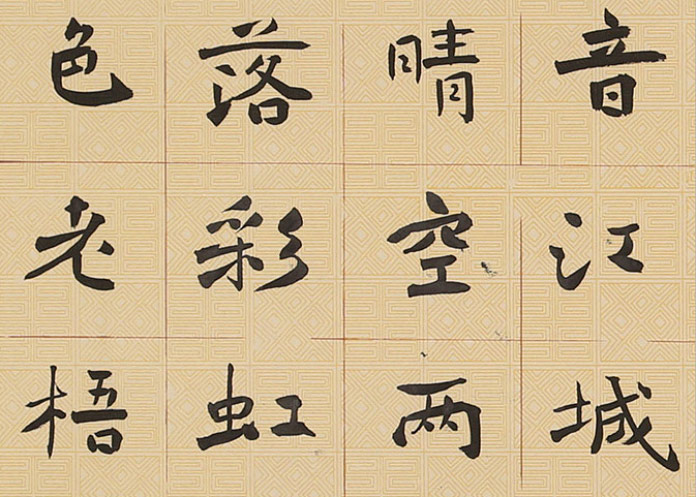 音江城
晴空两
落彩虹
色老梧